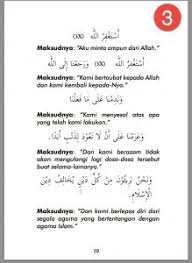 3
أَسْتَغْفِرُ اللهَ (3X)
Maksudnya: “Aku minta ampun dari Allah.”
أَسْتَغْفِرُ اللهَ (3X) وَرَجَعْنَا إِلَى اللهِ
Maksudnya: “Kami bertaubat kepada Allah
dan kami kembali kepada-Nya.”
وَنَدِمْنَا عَلَى مَا فَعَلْنَا
Maksudnya: “Kami menyesal atas apa
yang telah kami lakukan.”
وَعَزَمْنَا عَلَى أَنْ لَا نَعُودَ لِذَنْبٍ أَبَدًا.
Maksudnya: “Dan kami berazam tidak
akan mengulangi lagi dosa-dosa tersebut
buat selama-lamanya.”
وَنَحْنُ بَرِيئُونَ مِنْ كُلِّ دِيْنٍ يُخَالِفُ دِيْنَ
الْإِسْلَامِ.
Maksudnya: “Dan kami berlepas diri dari
segala agama yang bertentangan dengan
agama Islam.”
19